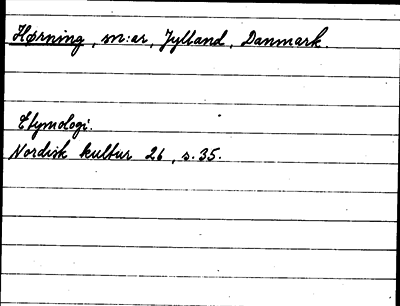 Hørning, sn:ar, Jylland, Danmark.
Etymologi.
Nordisk kultur 26, s. 35.